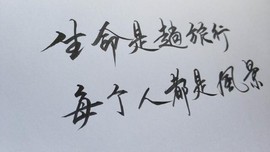 生命是趟旅行
每个人都是風景